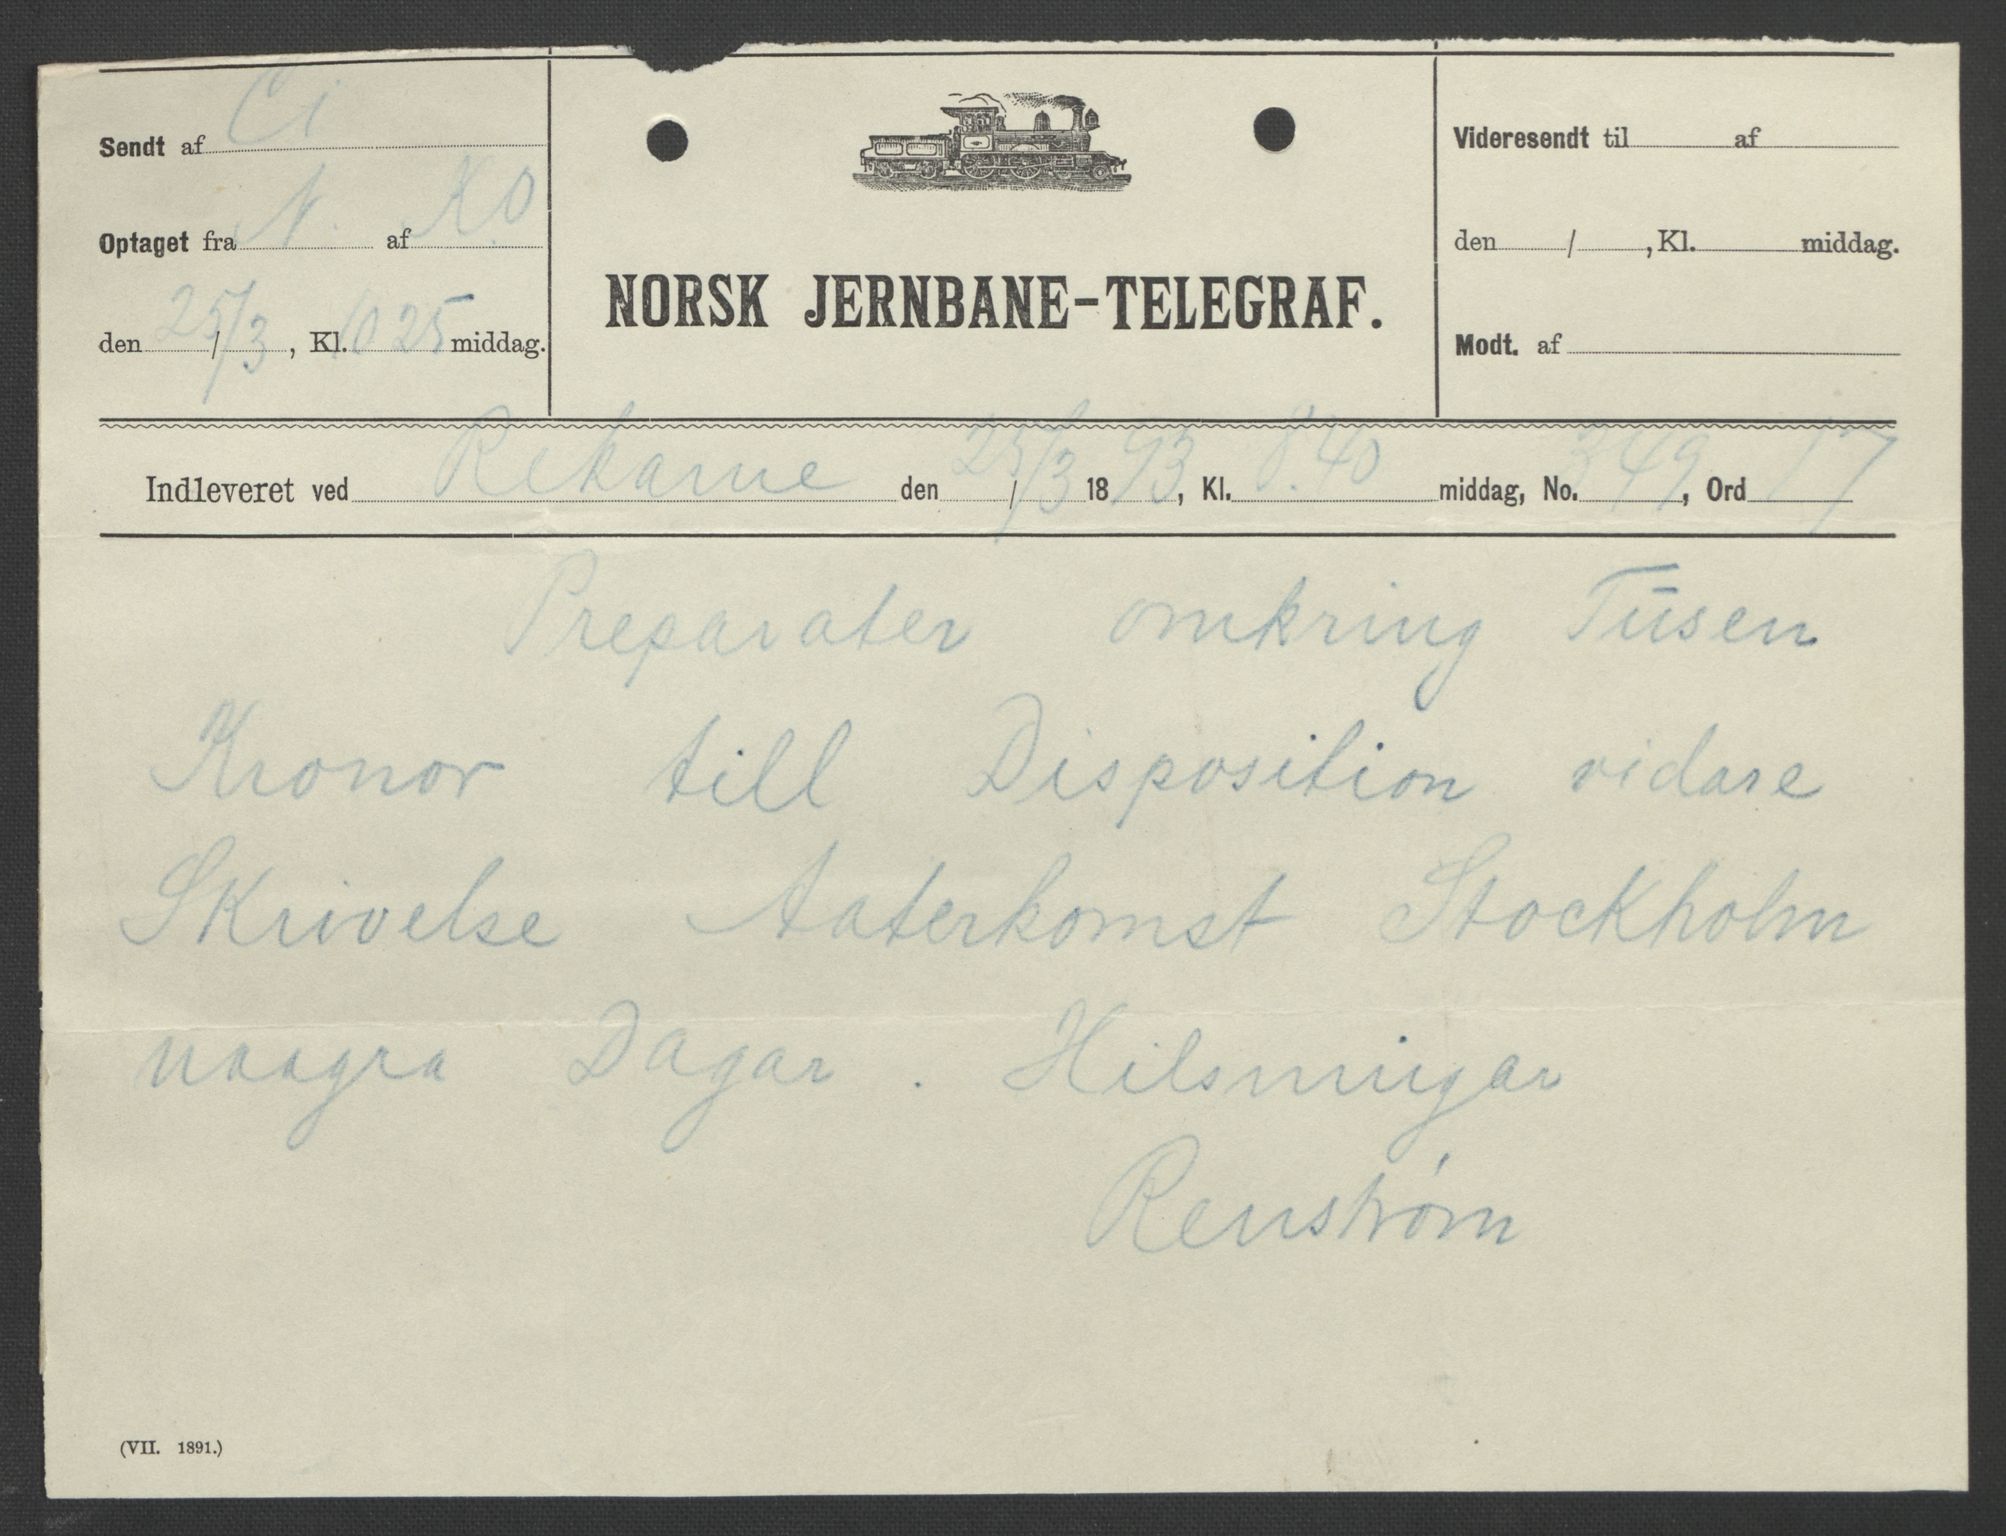 Sendt af Ci
Optaget fra N. af K.O
den 25/3, Kl. 10 25 middag.
NORSK JERNBANE-TELEGRAF.
Videresendt til af
den / , Kl. middag.
Modt. af
Indleveret ved Rekarne den 25/3 1893, Kl. 8.40 middag, No. 349, Ord 17
Preparater omkring Tusen
Kronor till Disposition vidare
Skrivelse Aaterkomst Stockholm
naagra Dagar . Hilsningar
Renstrøm
(VII. 1891.)